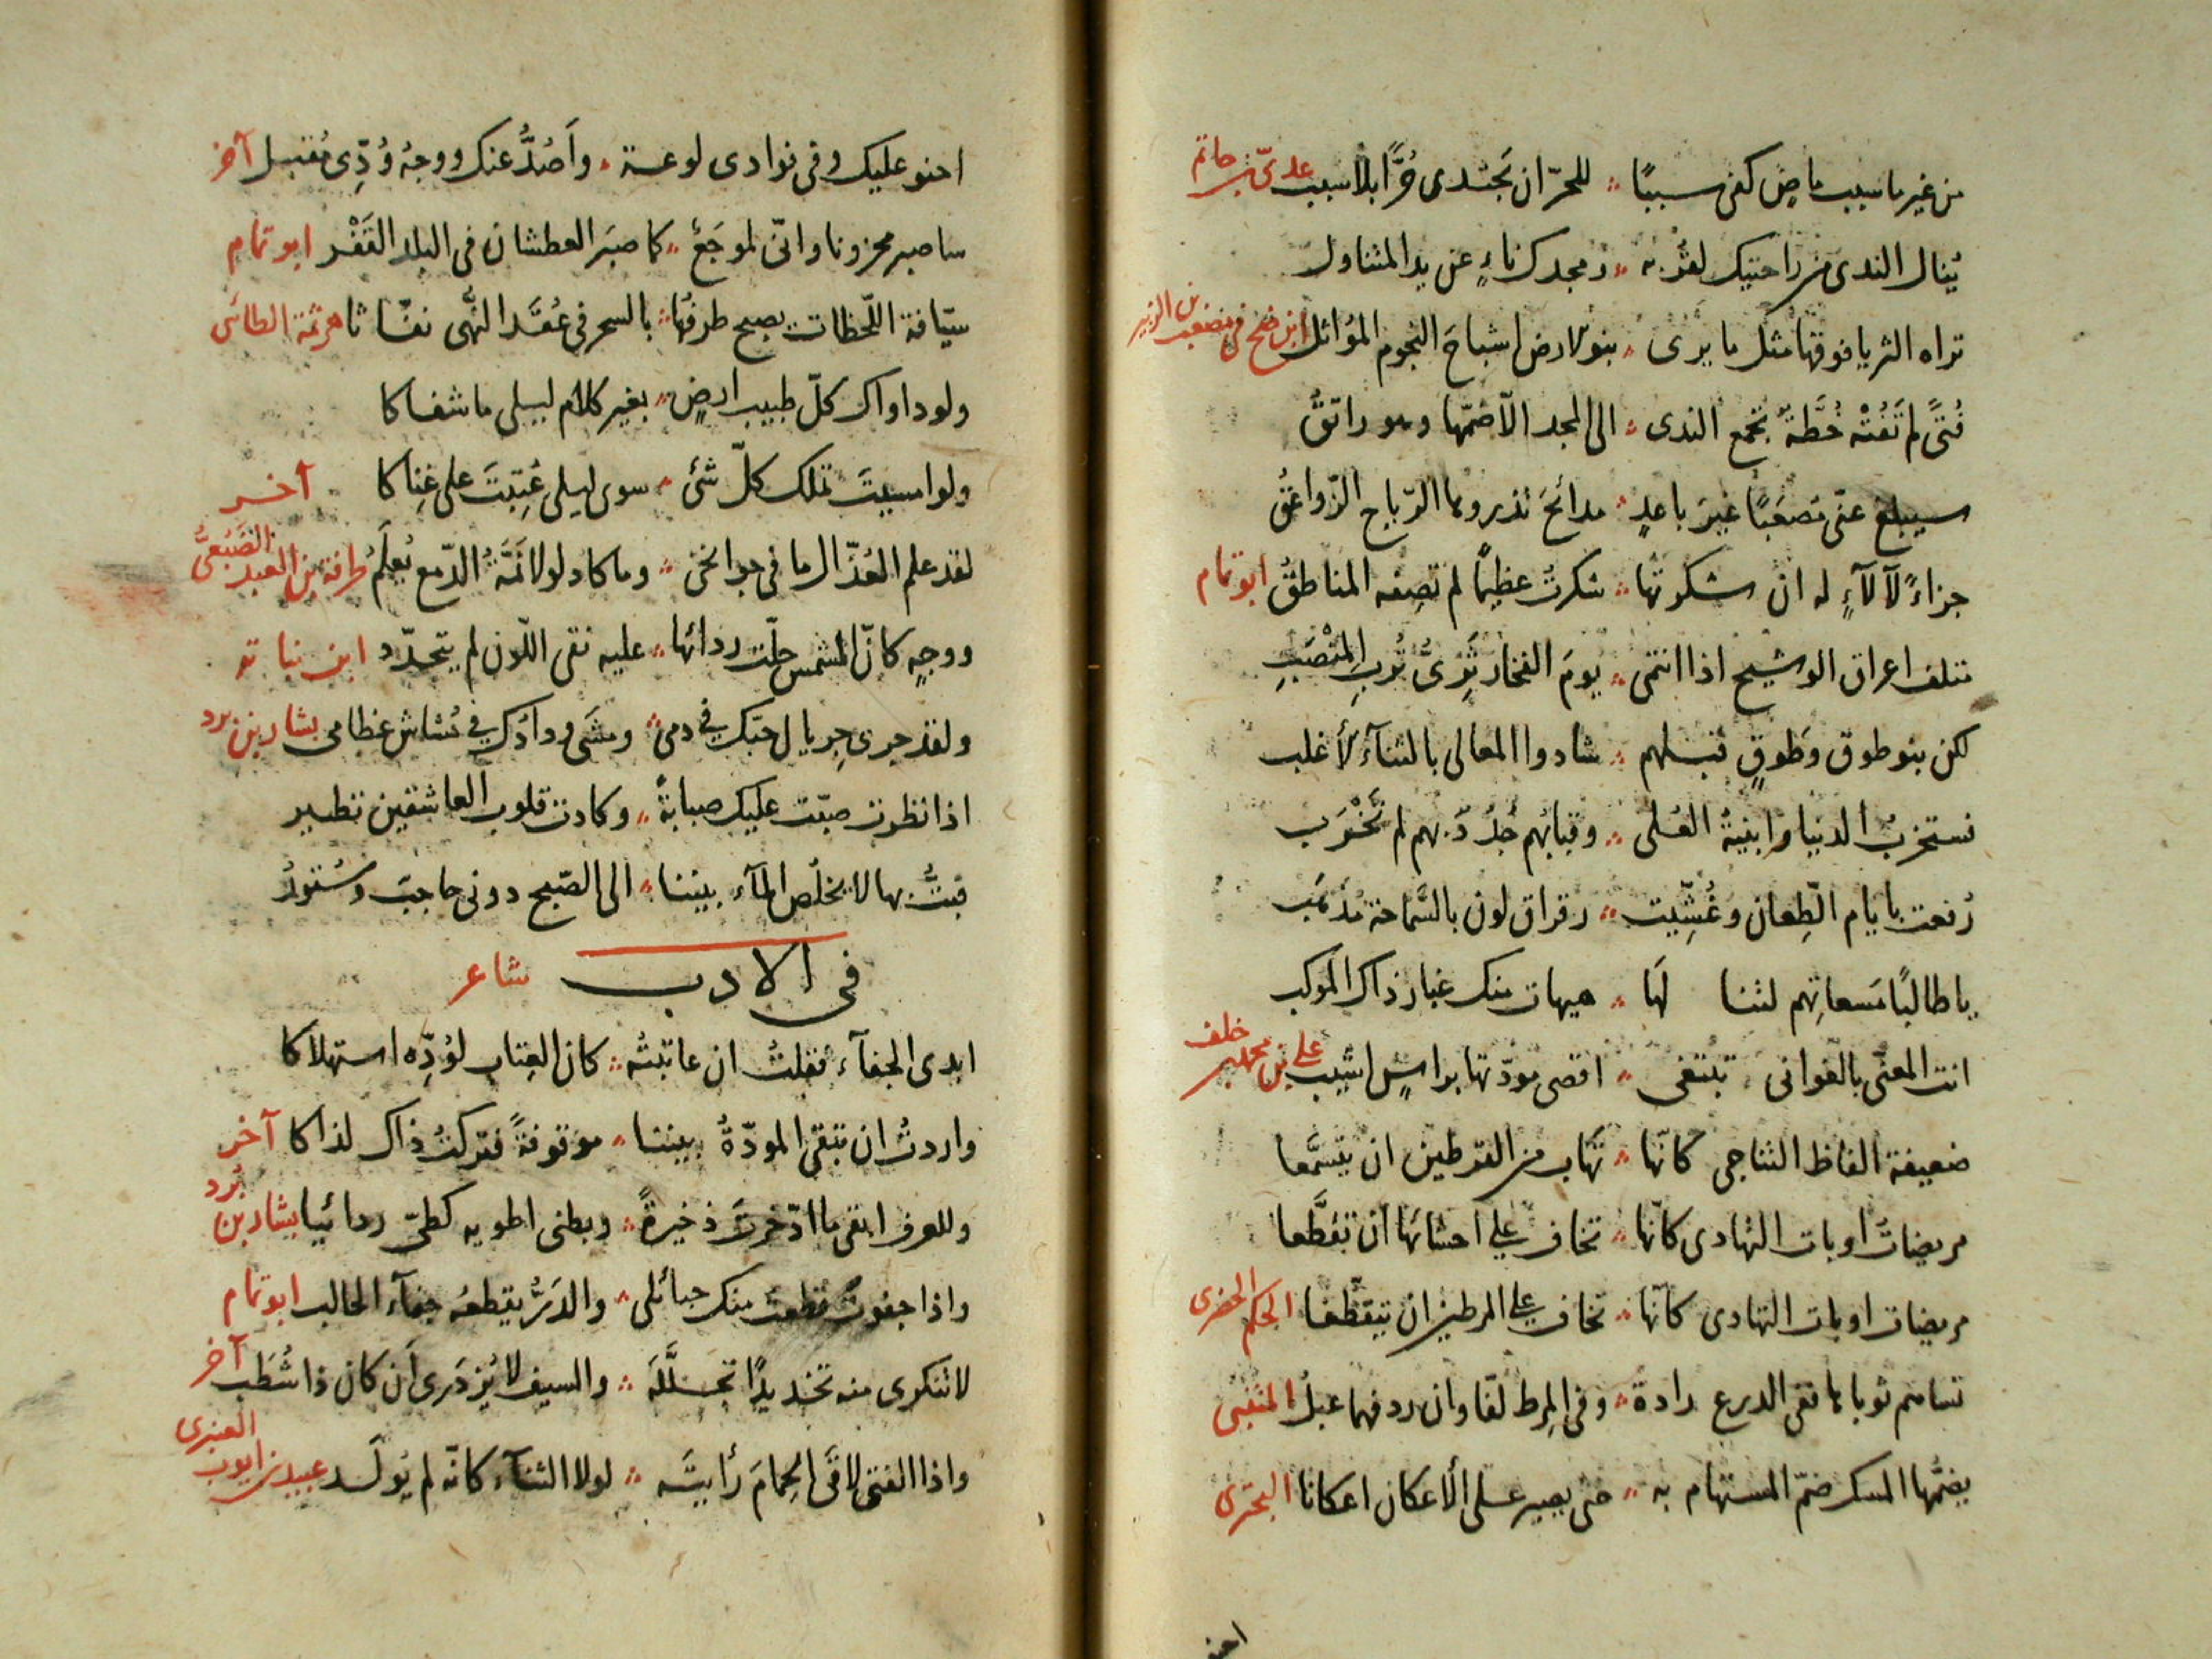 من غير ما سبب ماض كفى سببًا ؞ للحرّ ان يجتدى حُرًّا بلا سبب علىّ بن حاتم
يُنال الندى من راحتيك لقُربه ؞ ومجدك ناءٍ عن يد المتناول
تراه الثريا فوقها مثل ما يرى ؞ بنو الارض اشباح النجوم المؤاثل
فتًى لم تَفُتْه خُطّةٌ تجمع الندى ؞ الى المجد الّا ضمّها وهو راتقُ
سيبلغ عنّى مُصعَبًا غيرَ باعدٍ ؞ مدائحَ تذروها الرّياح الزّواعقُ
جزاءً لآلآءٍ له ان شكرتها ؞ شكرتُ عظيمًا لم تصِفه المناطقُ ابو تمام
متلف اعراق الوشيج اذا انتمى ؞ يومَ الفخار ثَرِىُّ تُربِ المَنْصَبِ
لكن بنو طوق وطوقٍ قبلهم ؞ شادوا المعالى بالثنآء الأغلب
فستخربُ الدنيا وابنيةُ العُلى ؞ وقبابُهم جُدُدٌ بهم لم تَخْرَب
رُفعت بايام الطِّعان وغُشِّيت ؞ رقراق لون بالسَّماحة مُذهَب
يا طالبًا مَسعاتِهم لثنا لَها ؞ هيهات منك غبار ذاك الموكب
انت المعنّى بالغوانى تبتغى ؞ اقصى مودّتها براسٍ اشيب على بن محمد بن خلف
ضعيفة الفاظ التناجى كانّها ؞ تَهاب من القرطين ان يتسمّعا
مريضاتُ اوبات التهادى كانّها ؞ تخاف على احشائها ان تقطّعا
مريضات اوبات التهادى كانّها ؞ تخاف على المرطين ان يتقطّعا الحكم الحضرى
تساهم ثوباها ففى الدرع رادة ؞ وفى المِرط لفّاوان ردفهما عبلُ المتنبى
يضمّها المسك ضمّ المستهام به ؞ حتى يصير على الأعكان اعكانا البحترى
احنو
احنو عليك وفى فوادى لوعة ؞ وأصُدُّ عنك ووجهُ وُدِّى مُقبل آخر
ساصبر محزونا وانّى لموجَعٌ ؞ كما صبَر العطشان فى البلد القَفْر ابو تمام
سيّافة اللّحظات يصبح طرفُها ؞ بالسحر فى عُقَد النُّهى نفّاثا هرثمة الطائى
ولو داواك كلّ طبيب ارضٍ ؞ بغير كلام ليلى ما شفاكا
ولو امسيتَ تملك كلّ شئ ؞ سوى ليلى عُتِبتَ على غِناكا آخر
لقد علم العُذّال ما فى جوانحى ؞ وما كاد لولا نَمّةُ الدّمع يُعلَمُ طرفة بن العبد الضبعىّ
ووجهٍ كانّ الشمس حلّت ردائها ؞ عليه نقى اللّون لم يتخدّد ابن نباته
ولقد جرى جِريال حبّك فى دمى ؞ ومشَى ودادُك فى مُشاش عظامى بشار بن برد
اذا نظرت صبّت عليك صبابةً ؞ وكادت قلوب العاشقين تطير
فبتُّ بها لا يخلُص المآء بيننا ؞ الى الصّبح دونى حاجبٌ وسُتورُ
فى الادب شاعر
ابدى الجفآء فقلتُ ان عاتبتُه ؞ كان العِتاب لوُدِّه استهلاكا
واردتُ ان تبقى المودّةُ بيننا ؞ موقوفةً فتركتُ ذاك لذاكا آخر
وللعرف ابقى ما ادّخرتَ ذخيرةً ؞ وبطنى اطويه كطىّ ردائيا بشار بن بُرد
واذا جفوتَ قطعتُ منك حبائلى ؞ والدَرُّ يقطعه جفآء الحالب ابو تمام
لا تنكرى منه تخديدًا تجلَّلَه ؞ والسيف لا يُزدَرى أن كان ذا شُطَب آخر
واذا الفتى لاقَى الحِمامَ رأيتَه ؞ لولا الثنآء كانّه لم يُولَد عبيد بن ايوب العنبرى